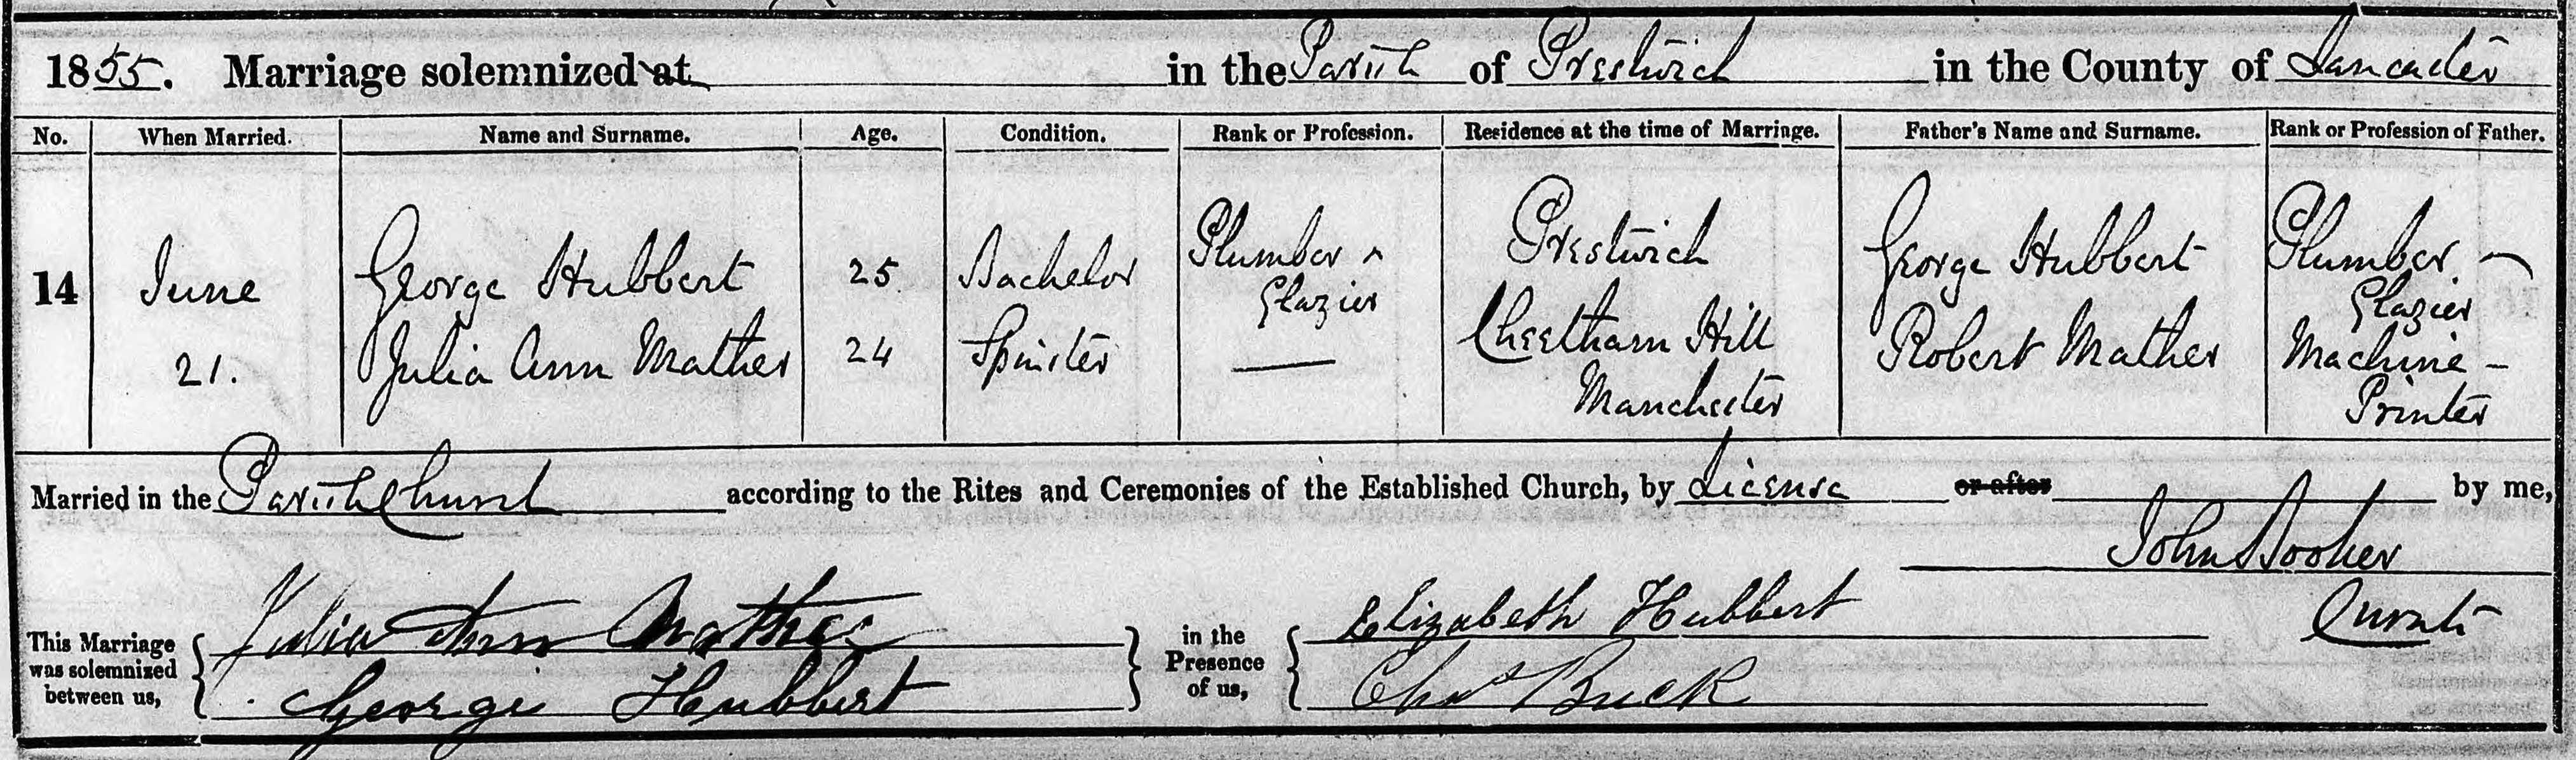 1855. Marriage solemnized at in the Parish of Prestwich in the County of Lancaster
No. When Married. Name and Surname. Age. Condition. Rank or Profession. Residence at the time of Marriage. Father's Name and Surname. Rank or Profession of Father.
14 June 21. George Hubbert 25 Bachelor Plumber & Glazier Prestwich George Hubbert Plumber & Glazier
Julia Ann Mather 24 Spinster — Cheetham Hill Manchester Robert Mather Machine - Printer
Married in the Parish Church according to the Rites and Ceremonies of the Established Church, by License or after by me,
John Booker
Curate
This Marriage was solemnized between us,
Julia Ann Mather
George Hubbert
in the Presence of us,
Elizabeth Hubbert
Chas Buck